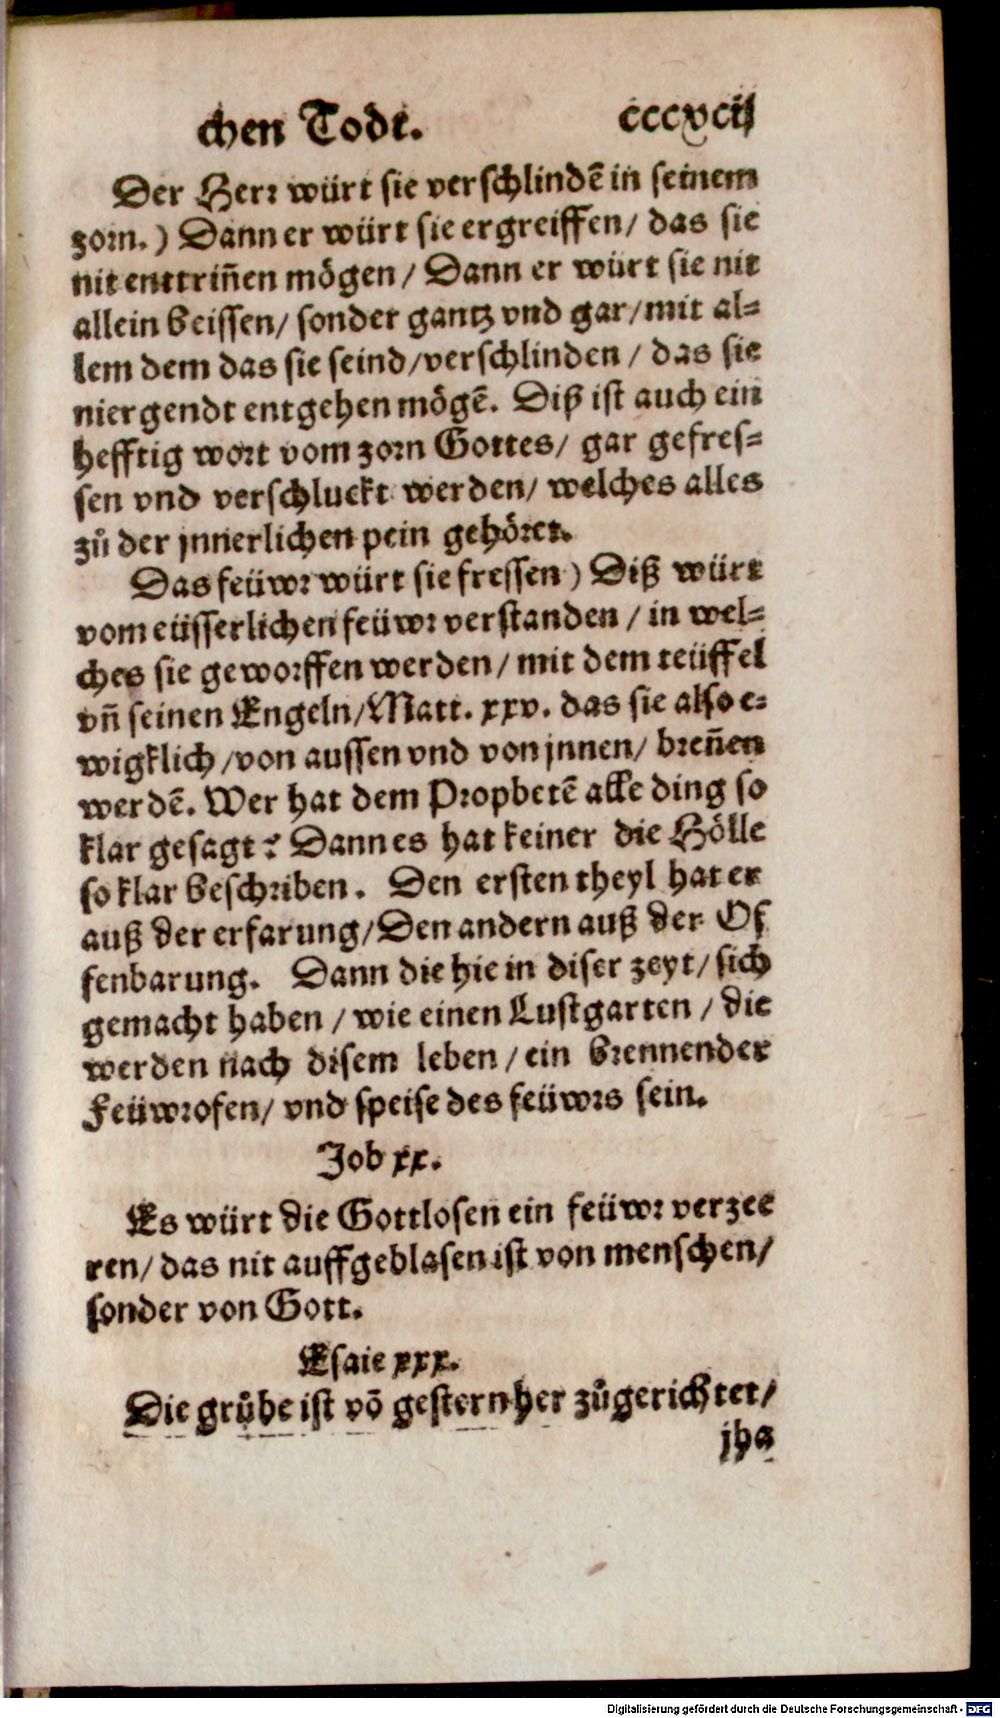 chen Todt. cccxcij
Der Herr würt sie verschlindẽ in seinem
zorn.) Dann er würt sie ergreiffen/ das sie
nit enttriñen mögen/ Dann er würt sie nit
allein beissen/ sonder gantz vnd gar/ mit al⸗
lem dem das sie seind/ verschlinden/ das sie
niergendt entgehen mögẽ. Diß ist auch ein
hefftig wort vom zorn Gottes/ gar gefres⸗
sen vnd verschluckt werden/ welches alles
zů der jnnerlichen pein gehöret.
Das feüwr würt sie fressen) Diß würt
vom eüsserlichen feüwr verstanden/ in wel⸗
ches sie geworffen werden/ mit dem teüffel
vñ seinen Engeln/ Matt. xxv. das sie also e⸗
wigklich/ von aussen vnd von jnnen/ breñen
werdẽ. Wer hat dem Prophetẽ alle ding so
klar gesagt? Dann es hat keiner die Hölle
so klar beschriben. Den ersten theyl hat er
auß der erfarung/ Den andern auß der Of
fenbarung. Dann die hie in diser zeyt/ sich
gemacht haben/ wie einen Lustgarten/ die
werden nach disem leben/ ein brennender
Feüwrofen/ vnd speise des feüwrs sein.
Job xx.
Es würt die Gottlosen ein feüwr verzee
ren/ das nit auffgeblasen ist von menschen/
sonder von Gott.
Esaie xxx.
Die grůbe ist võ gestern her zůgerichtet/
jha
Digitalisierung gefördert durch die Deutsche Forschungsgemeinschaft - DFG